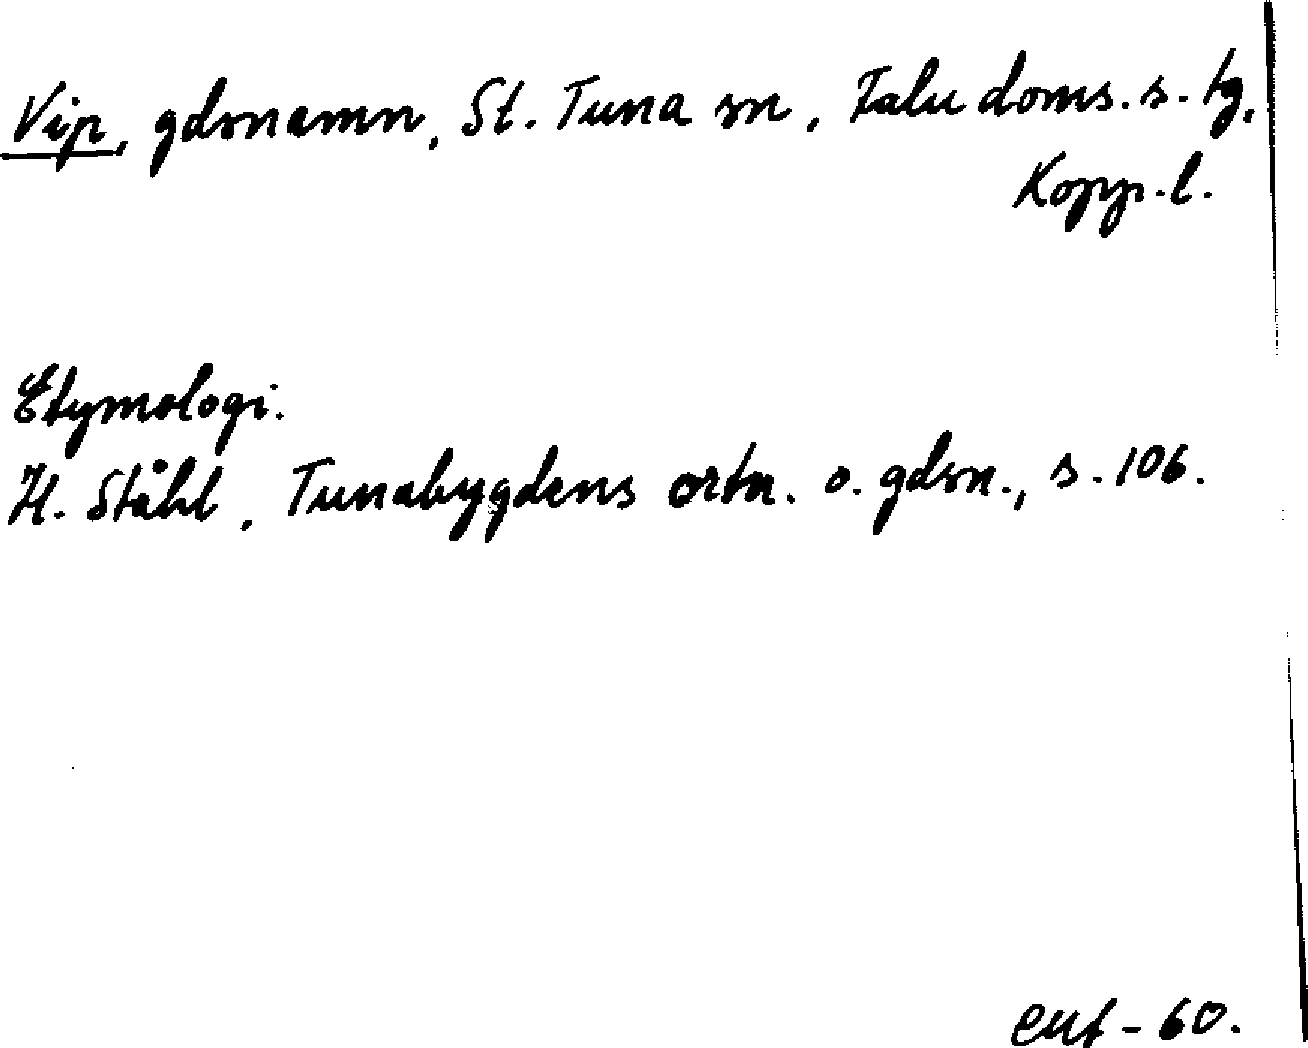 Vip, gdsnamn, St. Tuna sn, Falu doms. s. tg,
Kopp. l.
Etymologi.
H. Ståhl, Tunabygdens ortn. o. gdsn., s. 106.
- 60.